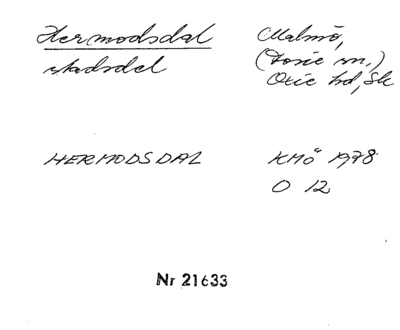 Hermodsdal
stadsdel
Malmö,
(Fosie sn.)
Oxie hd, Sk
HERMODSDAL
KMÖ 1978
O 12
Nr 21633